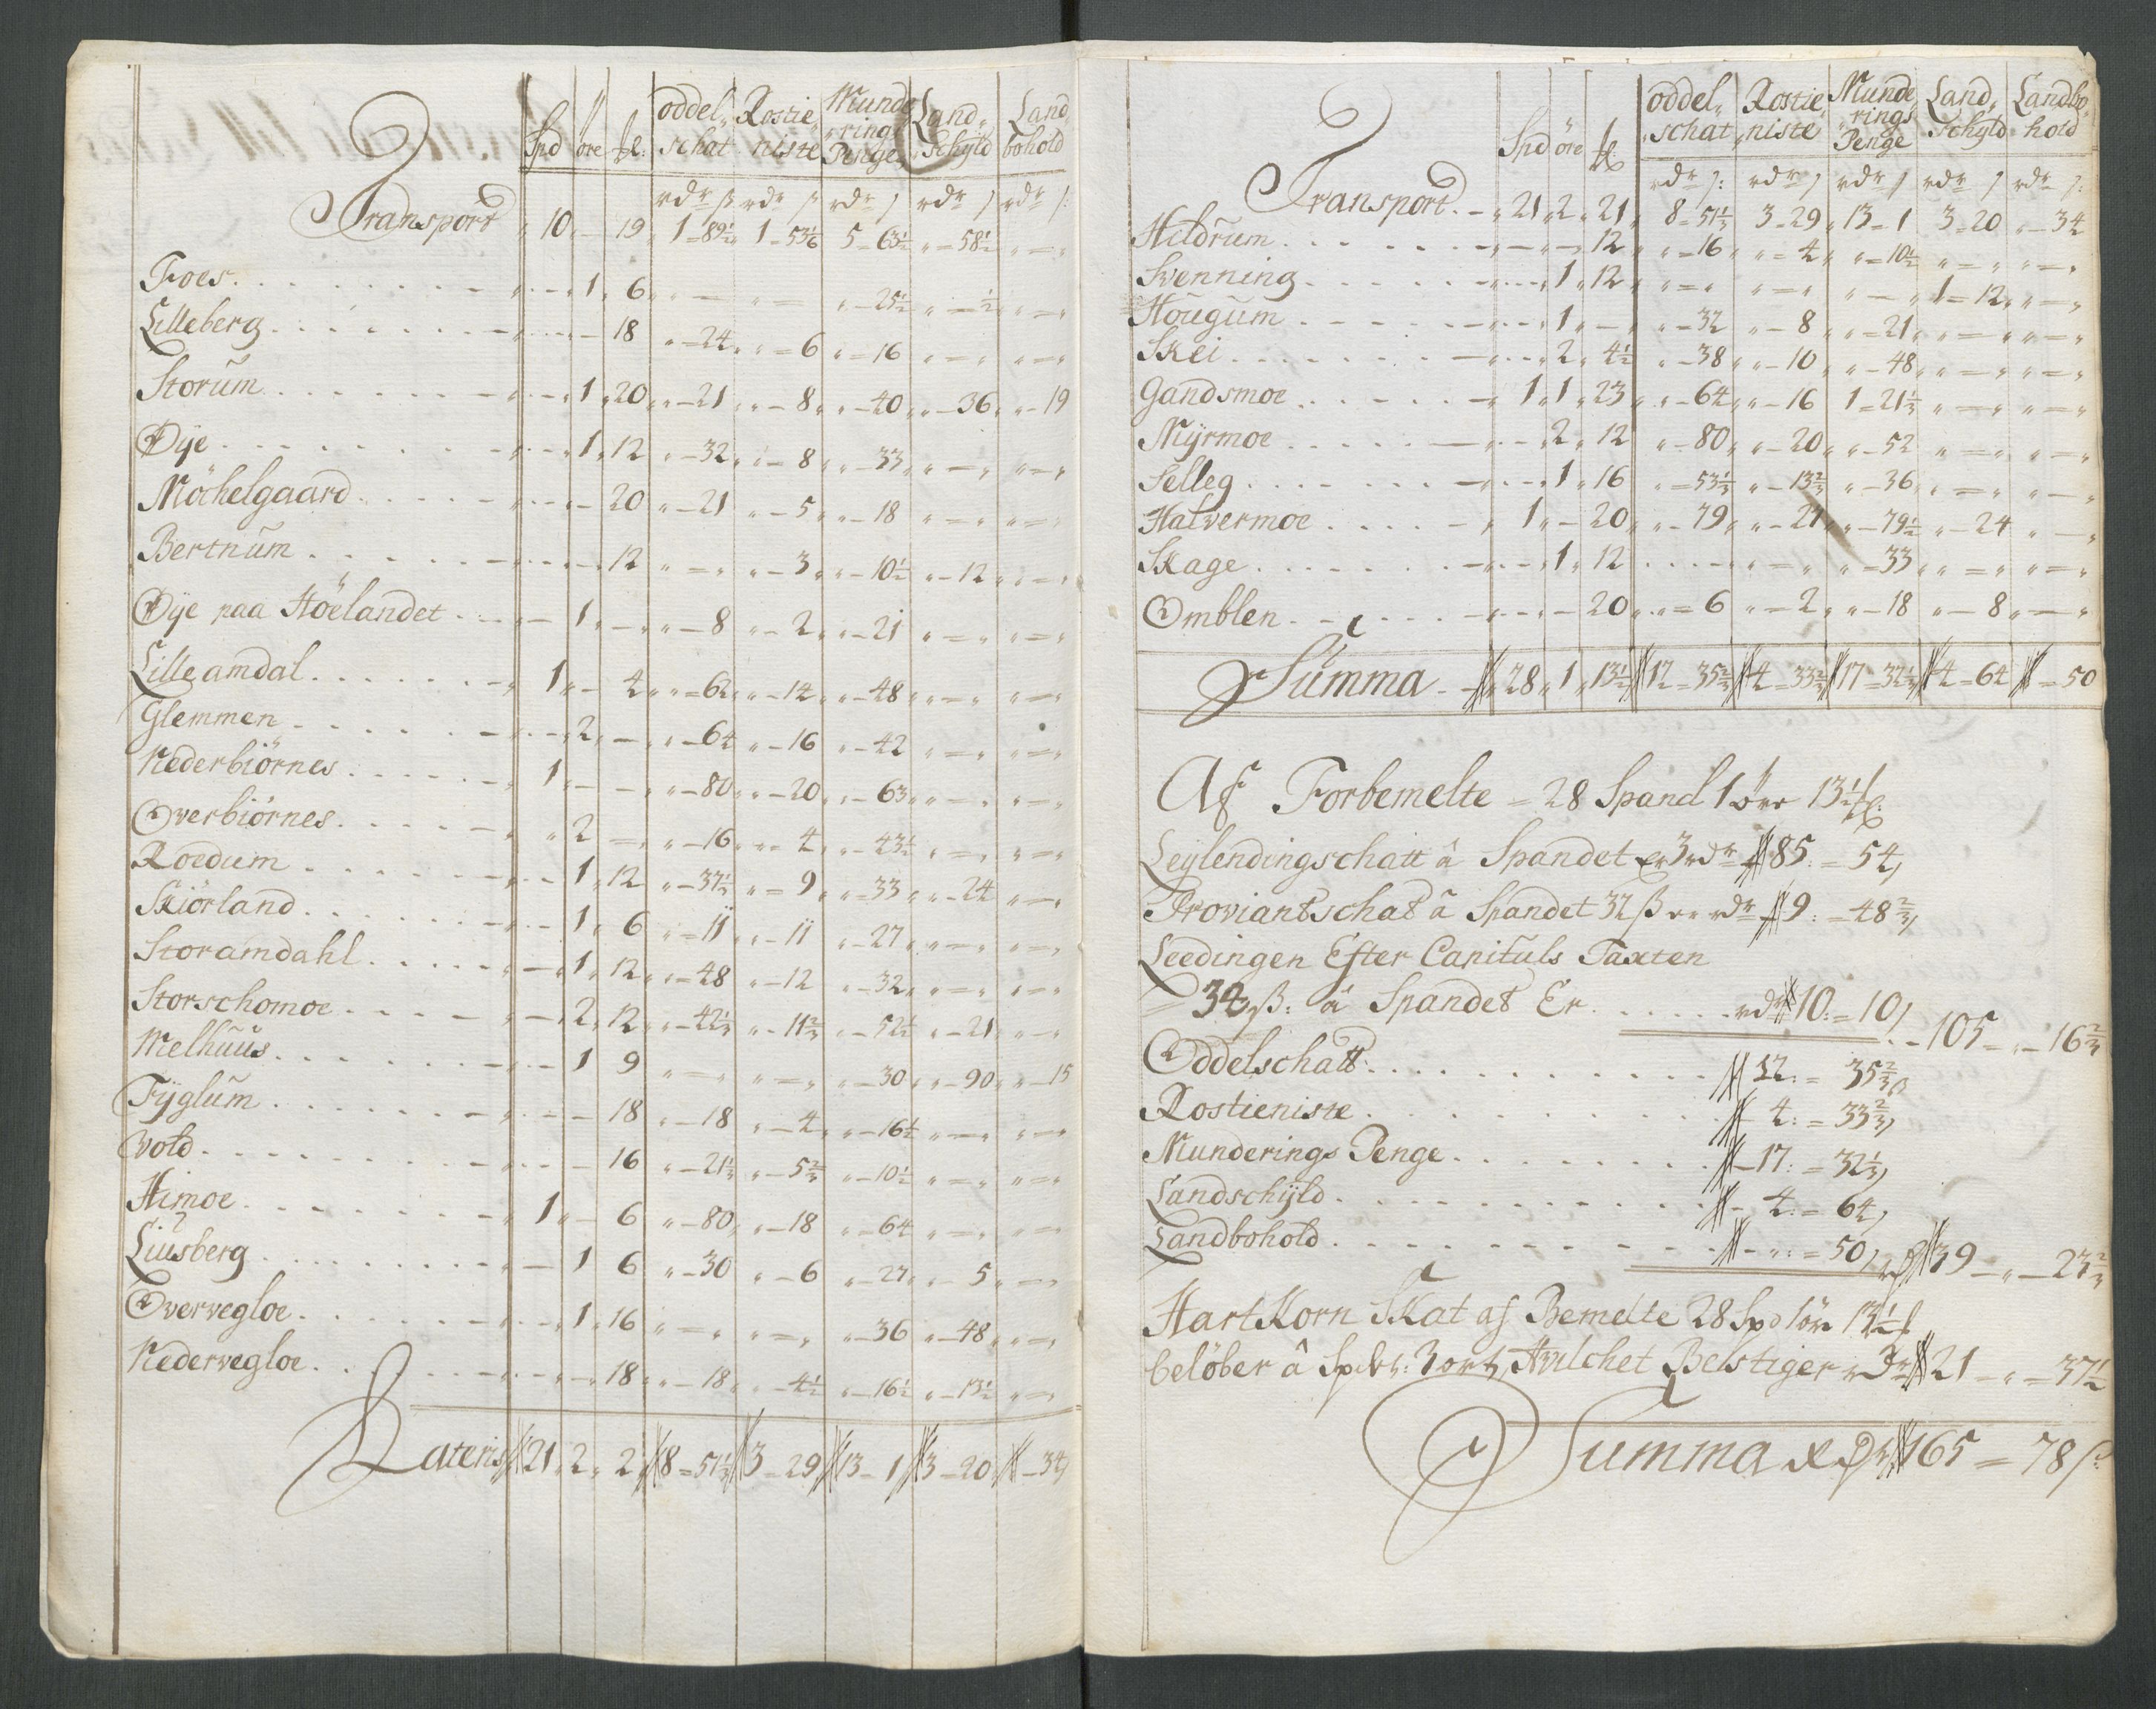 Spd öre ℔: oddel„ schat Rostie„ niste Munde„ rings Penge Land„ Schyld Land„ bohold
rdr ß rdr ß rdr ß rdr ß rdr ß:
Transport „ 10 „ – 19 „ 1 = 89½ „ 1 = 53 1/6 5 = 63½ „ = 58½ „ = „
Foes . . . „ 1 „ 6 „ „ = „ „ = „ – 25½ „ – ½ „ = „
Lilleberg . . . – 18 „ = 24 „ „ = 6 „ = 16 „ = „ „ = „
Storum . . . „ 1 „ 20 „ – 21 „ – 8 „ – 40 „ – 36 „ – 19
Øye . . . „ 1 „ 12 „ – 32 „ – 8 „ – 33 „ = „ „ = „
Möchelgaard . . . – 20 „ – 21 „ – 5 „ – 18 „ = „ „ = „
Bertnum . . . – 12 „ = „ „ – 3 „ – 10½ „ – 12 „ = „
Øye paa Höelandet . . . 1 „ – „ – 8 „ – 2 „ – 21 „ = „ „ = „
Lilleamdal . . . „ 1 „ – 4 „ = 62 „ – 14 „ – 48 „ = „ „ = „
Glemmen . . . 2 „ – „ – 64 „ – 16 „ – 42 „ = „ „ = „
Nederbiörnes . . . „ 1 – – „ – 80 „ – 20 „ – 63 „ = „ „ = „
Overbiörnes . . . „ 2 – „ – 16 „ – 4 „ – 43½ „ = „ „ = „
Roedum . . . 1 „ 12 „ – 37⅓ „ = 9 „ = 33 „ – 24 „ = „
Skiörland . . . 1 „ 6 „ = 11 „ – 11 „ – 27 „ = „ „ = „
Storamdahl . . . „ 1 „ 12 „ – 48 „ – 12 „ – 32 „ = „ „ = „
Storschomoe . . . – 2 „ 12 „ – 42⅓ „ – 11⅔ „ – 52½ „ – 21 „ – „
Melhuus . . . 1 9 „ = „ „ = „ „ – 30 „ – 90 „ – 15
Fyglum . . . – 18 „ – 18 „ – 4 „ – 16½ „ = „ „ = „
Vold . . . – 16 „ – 21⅓ „ – 5⅔ „ – 10½ „ = „ „ = „
Himoe . . . „ 1 „ – 6 „ – 80 „ – 18 „ – 64 „ = „ „ = „
Liusberg . . . – 1 6 „ – 30 „ – 6 „ – 27 „ – 5 „ = „
Overvegloe . . . „ 1 „ 16 „ = „ „ = „ „ – 36 „ – 48 „ = „
Nedervegloe . . . „ 18 „ – 18 „ – 4½ „ – 16½ „ – 13½ „ = „
Lateris 21 „ 2 „ 2 8 = 51⅓ 3 – 29 13 – 1 3 – 20 – 34
Spd öre ℔ oddel„ schat Rostie„ niste Munde„ rings Penge Land„ Schyld Landbo„ hold
rdr ß: rdr ß rdr ß rdr ß rdr ß:
Transport . – „ 21 „ 2 „ 21 „ 8 = 51⅓ 3 = 29 „ 13 = 1 3 = 20 „ – 34
Hildrum . . . 12 „ = 16 „ = 4 „ = 10½ „ = „ „ = „
Svenning . . . 1 „ 12 „ = „ „ = „ „ – „ 1 = 12 „ = „
Hougum . . . 1 „ – „ – 32 „ – 8 „ = 21 „ = „ „ = „
Skei . . . 2 „ 4½ „ – 38 „ – 10 „ – 48 „ = „ „ = „
Gandsmoe . . . „ 1 „ 1 „ 23 „ – 64 „ – 16 1 = 21⅓ „ = „ „ = „
Myrmoe . . . 2 „ 12 „ – 80 „ – 20 „ – 52 „ = „ „ = „
Selleg . . . 1 „ 16 „ = 53⅓ „ – 13⅔ „ – 36 „ = „ „ – „
Halvermoe . . . „ 1 „ – 20 „ – 79 „ – 21 „ – 79½ „ – 24 „ – „
Skage . . . 1 „ 12 . . . „ = „ „ = 33 „ = „ „ = „
Omblen . . . – 20 „ = 6 „ = 2 „ – 18 „ – 8 „ – „
Summa – 28 „ 1 „ 13½ 12 = 35⅔ 4 = 33⅔ 17 = 32⅓ 4 = 64 = 50
Af Forbemelte = 28 Spand 1 öre 13½ ℔
Leylendingschatt â Spandet er 3 rdr 85 = 54,
Proviantschat â Spandet 32 ß er rdr 9: = 48⅔,
Leedingen Efter Capituls Taxten
34 ß: â Spandet Er . . . . . rdr 10: = 10,
. – 105 – „ – 16⅔
Oddelschatt . . . 12: = 35⅔,
Rostieniste . . . 4: = 33⅔,
Munderings Penge . . . 17: = 32⅓,
Landschyld . . . – 4: = 64,
Landbohold . . . – „: = 50, rdr 39 – „ – 23⅔
Hart Korn Skat af Bemelte 28 Spd 1 öre 13½ ℔
belöber â Spdr: 3 ort, Hvilchet Belstiger rdr 21 – „ = 37½
Summa Rdr 165 = 78 ß: